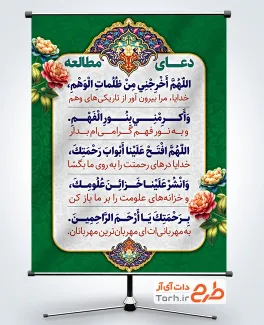 دعای مطالعه
اَللّهُمَّ أَخْرِجْنِي مِنْ ظُلُماتِ الْوَهْمِ،
خدایا، مرا بیرون آور از تاریکی‌های وهم
وَأَكْرِمْنِي بِنُورِ الْفَهْمِ.
و به نور فهم گرامی‌ام بدار
اَللّهُمَّ افْتَحْ عَلَيْنا أَبْوابَ رَحْمَتِكَ
خدایا درهای رحمتت را به روی ما بگشا
وَانْشُرْ عَلَيْنا خَزائِنَ عُلُومِكَ
و خزانه‌های علومت را بر ما باز کن
بِرَحْمَتِكَ يا أَرْحَمَ الرّاحِمِينَ.
به مهربانی‌ات ای مهربان‌ترین مهربانان.
طرح دات آی‌آر
Tarh.ir